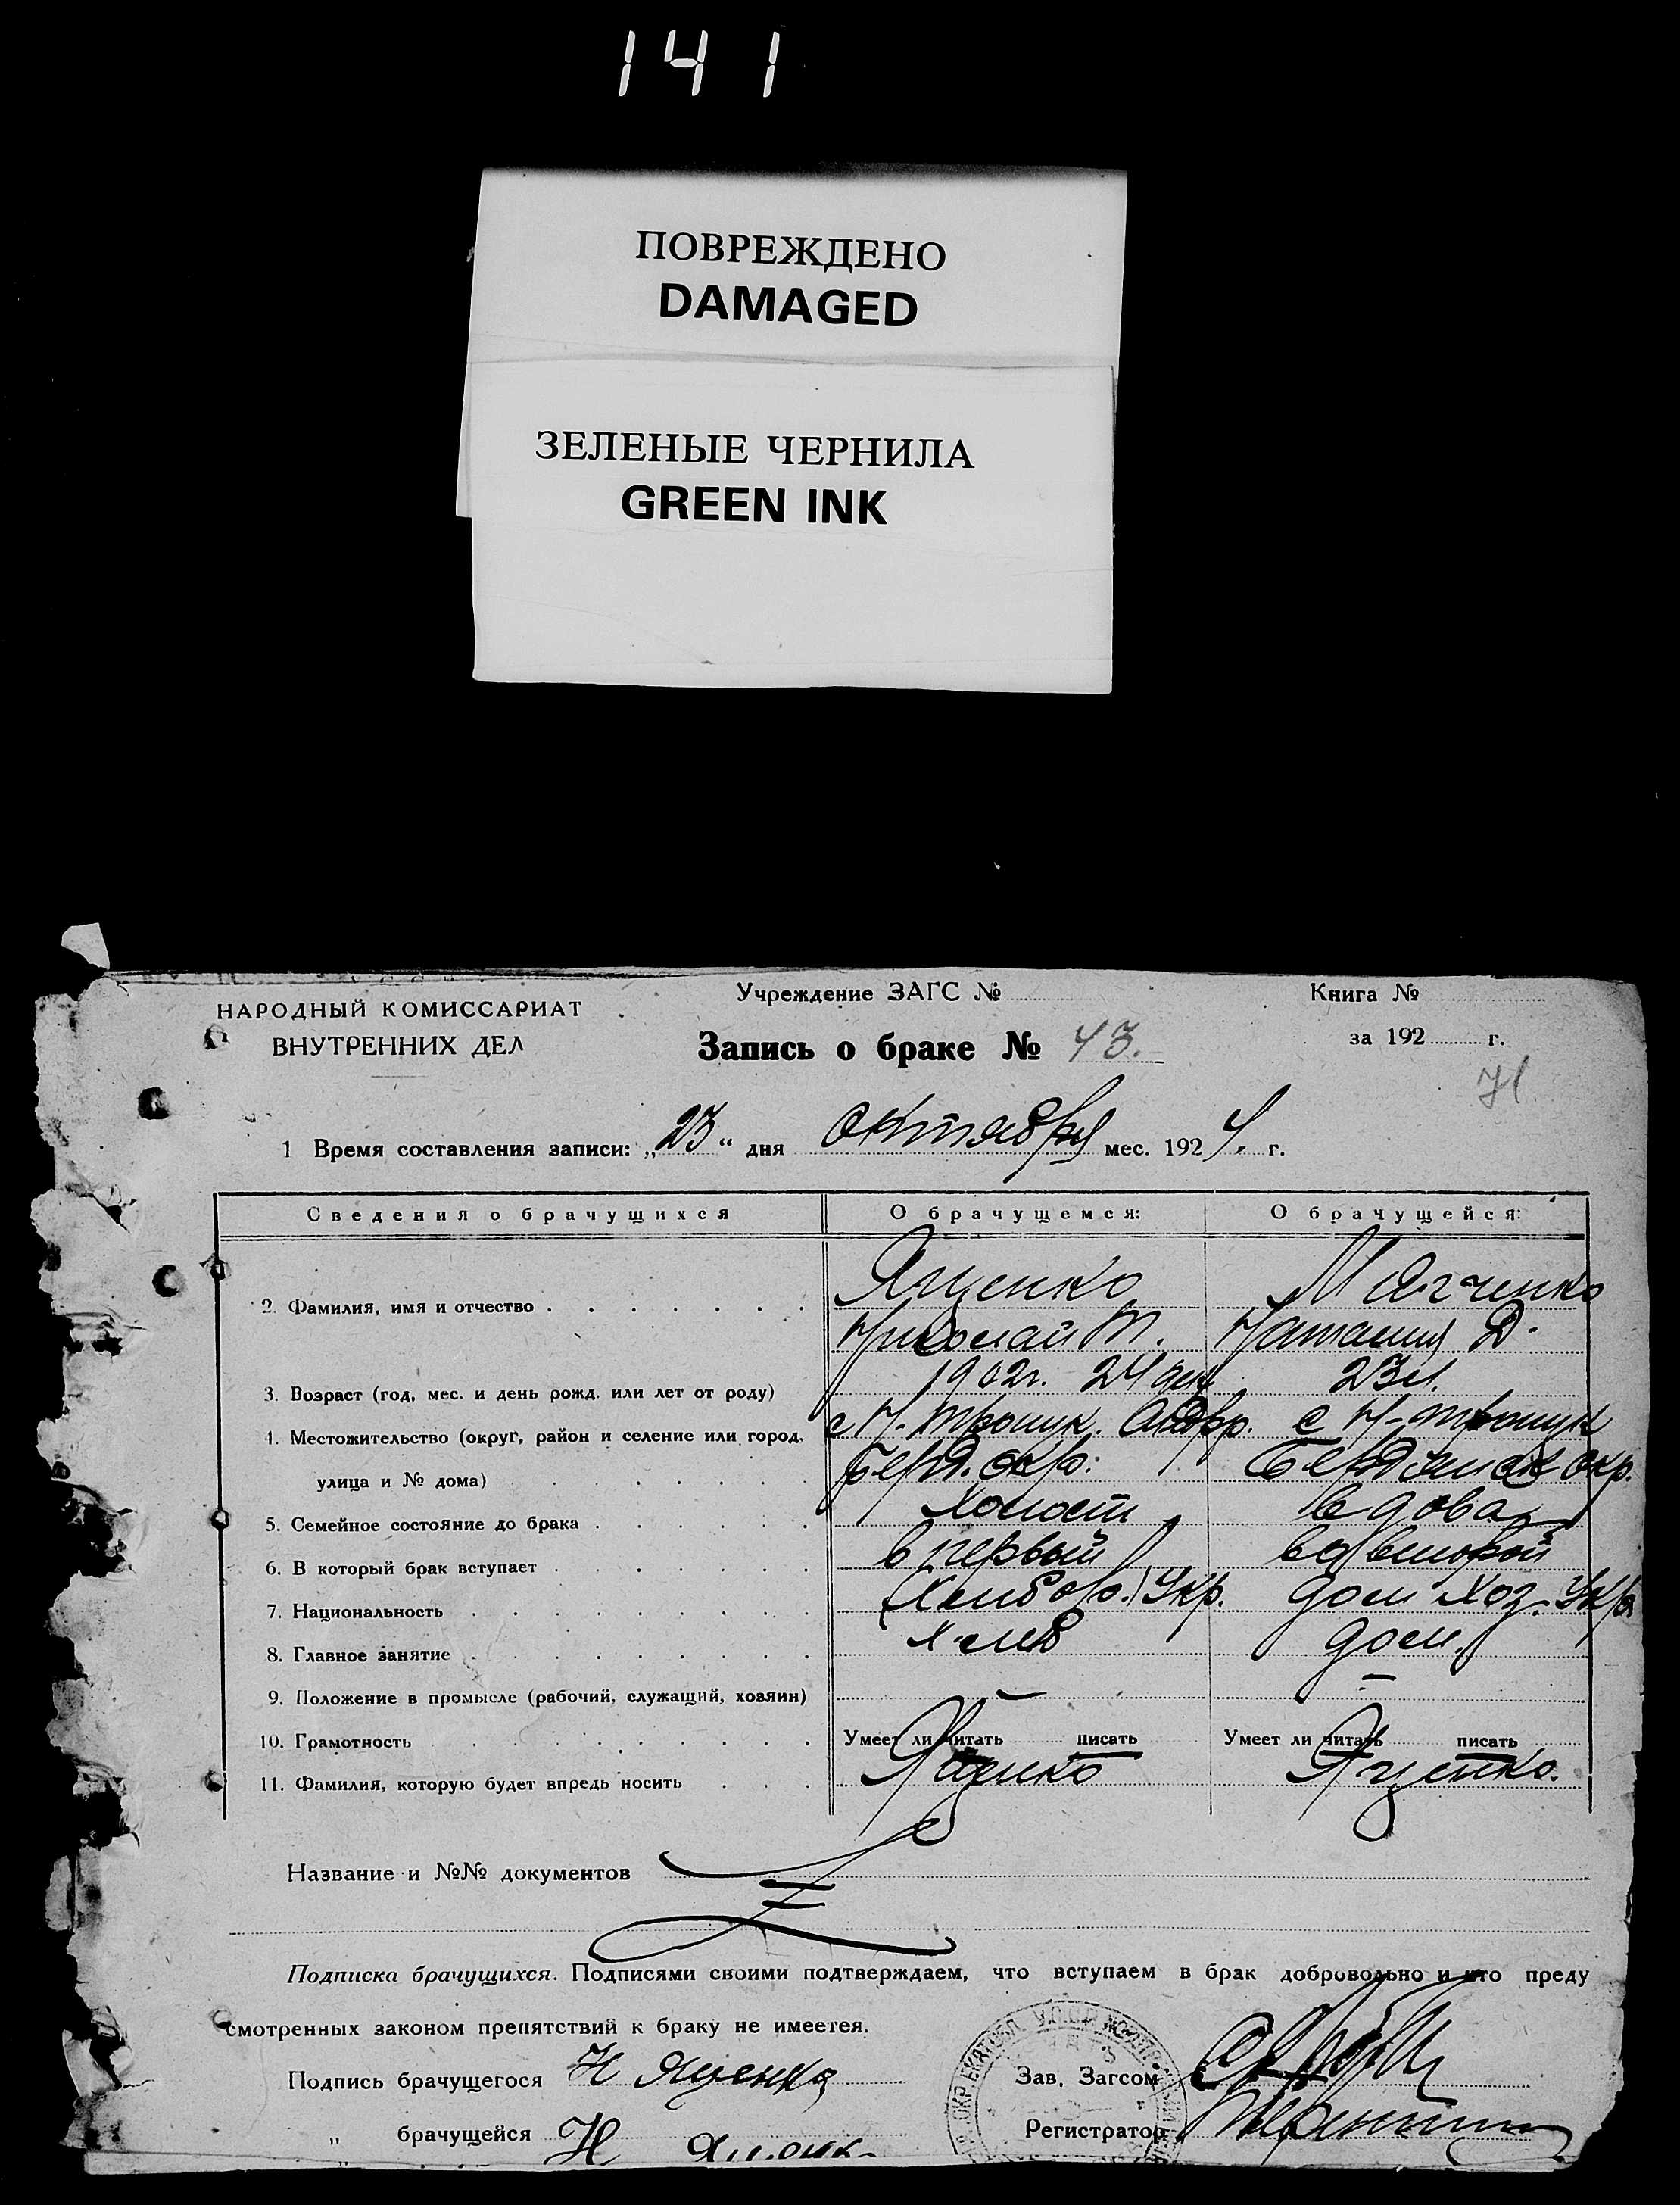 141
ПОВРЕЖДЕНО
DAMAGED
ЗЕЛЕНЫЕ ЧЕРНИЛА
GREEN INK
НАРОДНЫЙ КОМИССАРИАТ
ВНУТРЕННИХ ДЕЛ
Учреждение ЗАГС №
Запись о браке № 43.
Книга №
за 192 г.
1 Время составления записи: „23" дня октября мес. 1924. г.
Сведения о брачущихся О брачущемся: О брачущейся:
2. Фамилия, имя и отчество Яценко
Николай
Наталия Д.
3. Возраст (год, мес. и день рожд. или лет от роду) 1902г. 24 дек 23 л.
4. Местожительство (округ, район и селение или город, с Н- с Н-
улица и № дома) Берд. окр. окр.
5. Семейное состояние до брака холост вдова
6. В который брак вступает в первый во второй
7. Национальность (Хлебор.) Укр. дом хоз. Укр
8. Главное занятие хлеб дом.
9. Положение в промысле (рабочий, служащий, хозяин) — —
10. Грамотность Умеет ли читать писать Умеет ли читать писать
11. Фамилия, которую будет впредь носить Яценко Яценко.
Название и №№ документов
Подписка брачущихся. Подписями своими подтверждаем, что вступаем в брак добровольно и что преду
смотренных законом препятствий к браку не имеется.
Подпись брачущегося Н Яценко
Зав. Загсом
„ брачущейся Н
Регистратор